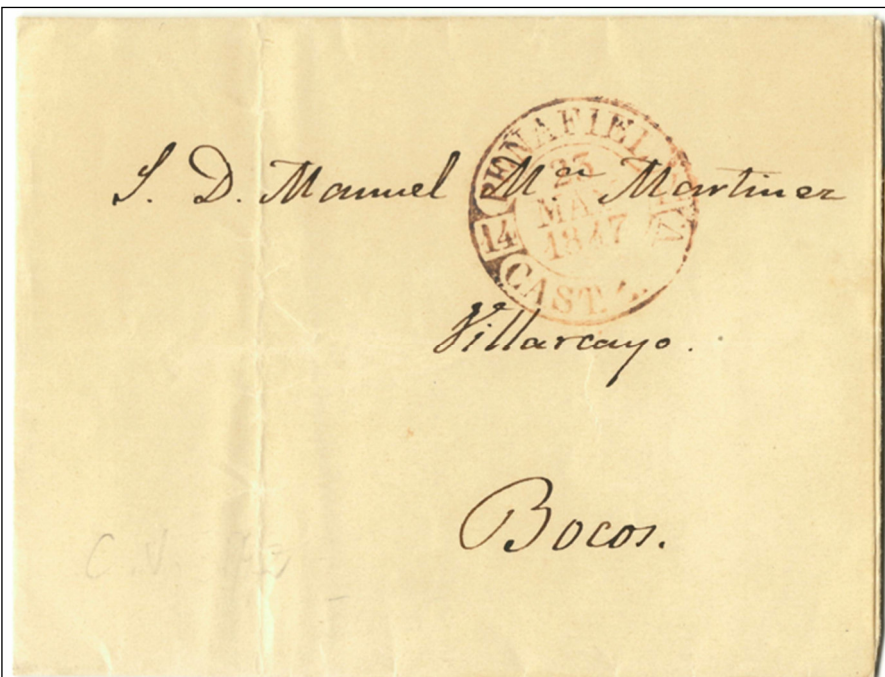 S. D. Manuel Mª Martinez
PEÑAFIEL
23
MAY
1847
14
CAST.
Villarcayo.
Bocos.
C.V.